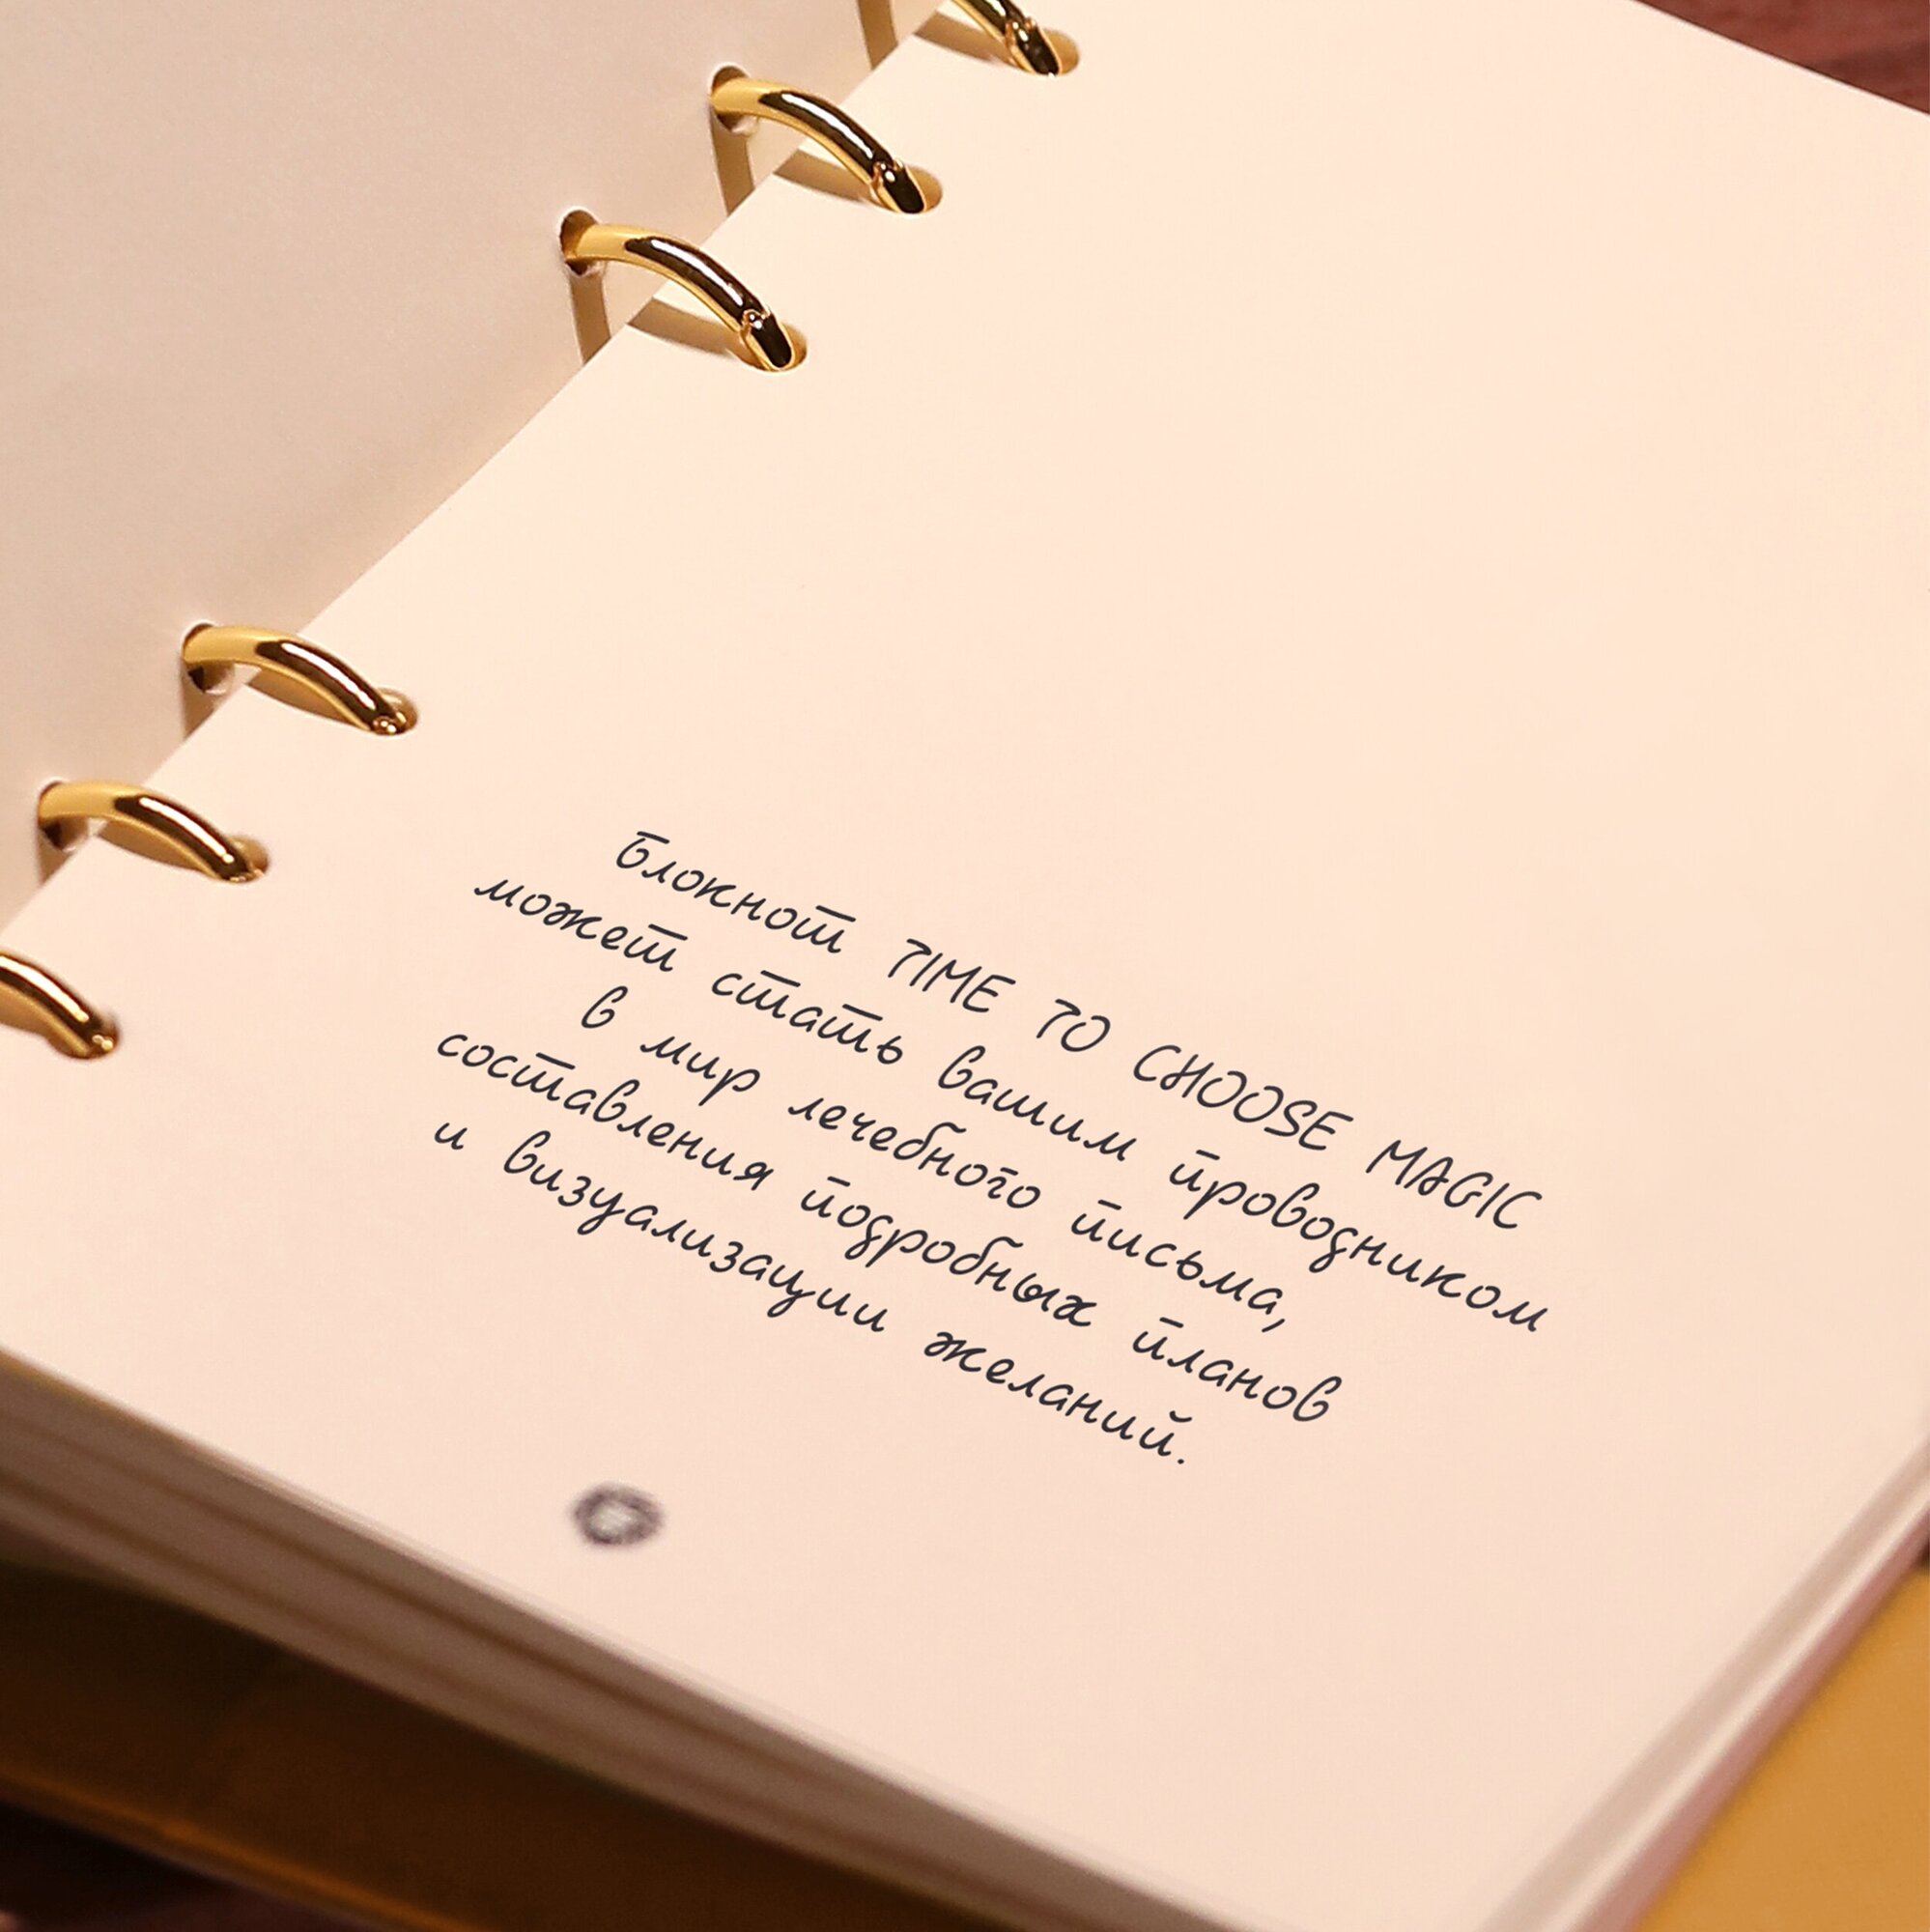 Блокнот TIME TO CHOOSE MAGIC
может стать вашим проводником
в мир лечебного письма,
составления подробных планов
и визуализации желаний.